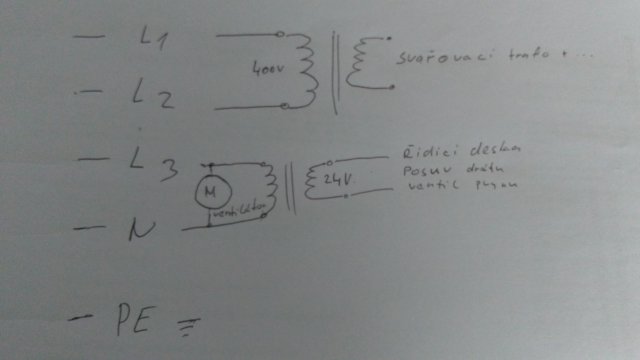 L1
400V
svařovací trafo + ...
L2
L3
M
ventilátor
24V.
Řídící deska
Posuv drátu
ventil plynu
N
PE